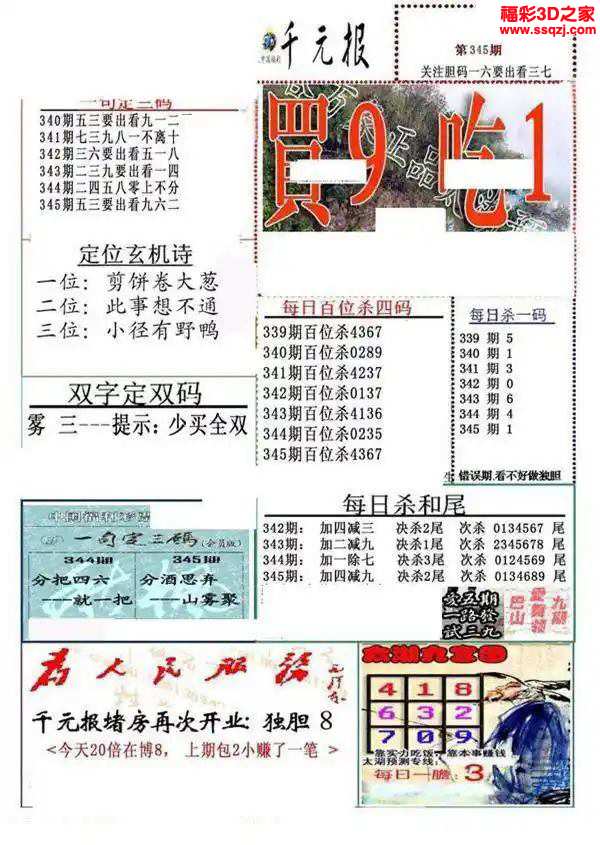 福彩3D之家
www.ssqzj.com
千元报
第345期
关注胆码一六要出看三七
一句定三码
340期五三要出看九一二
341期七三九八一不离十
342期三六要出看五一八
343期二三九要出看一四
344期二四五八零上不分
345期五三要出看九六二
買9吃1
定位玄机诗
一位:剪饼卷大葱
二位:此事想不通
三位:小径有野鸭
双字定双码
雾 三---提示:少买全双
每日百位杀四码
339期百位杀4367
340期百位杀0289
341期百位杀4237
342期百位杀0137
343期百位杀4136
344期百位杀0235
345期百位杀4367
每日杀一码
339 期 5
340 期 1
341 期 3
342 期 0
343 期 6
344 期 4
345 期 1
错误期.看不好做独胆
每日杀和尾
342期: 加四减三 决杀2尾 次杀 0134567 尾
343期: 加二减九 决杀1尾 次杀 2345678 尾
344期: 加一除七 决杀3尾 次杀 0124569 尾
345期: 加四减九 决杀2尾 次杀 0134689 尾
一句定三码(会员版)
344期
分把四六
---就一把
345期
分酒思弃
---山雾聚
爱五期
一路发
试三九
巴山
九期
为人民服务
千元报堵房再次开业: 独胆 8
<今天20倍在博8, 上期包2小赚了一笔 >
太湖九宫图
4 1 8
6 3 2
7 0 9
靠实力吃饭,靠本事赚钱
太湖预测专线:
每日一胆: 3